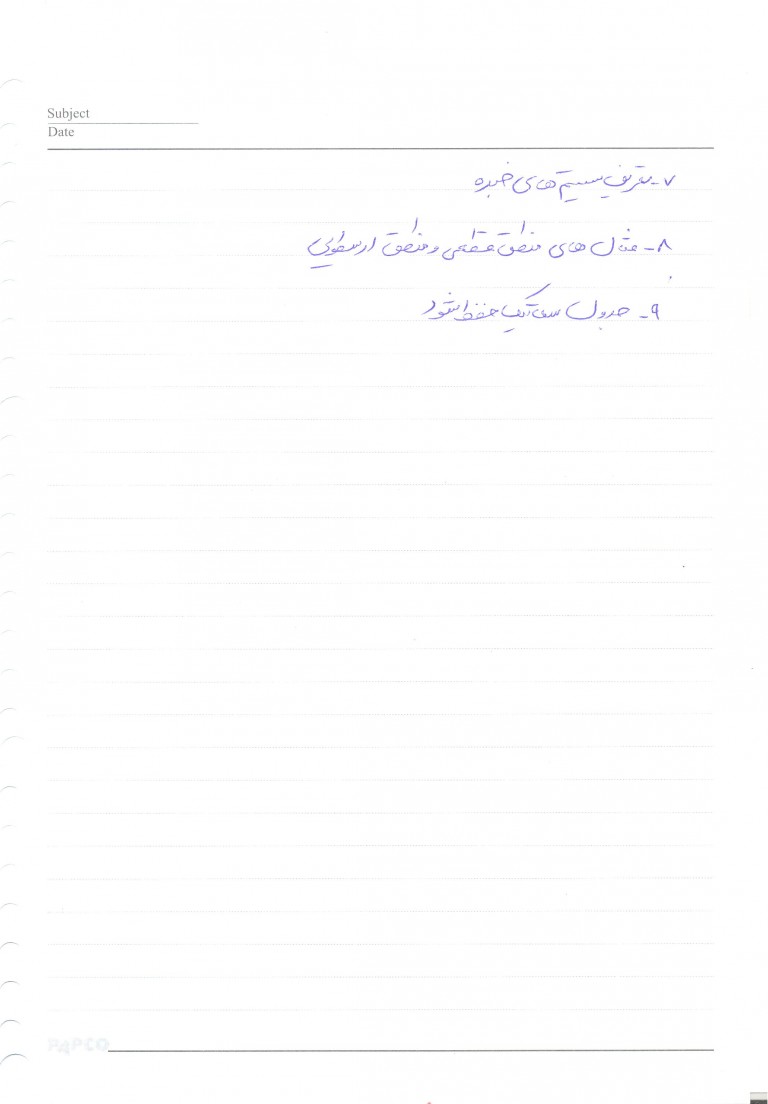 Subject
Date
۷- تعریف سیستم های خبره
۸- مثال های منطق قطعی و منطق ارسطویی
۹- جدول حفظ شود
PAPCO